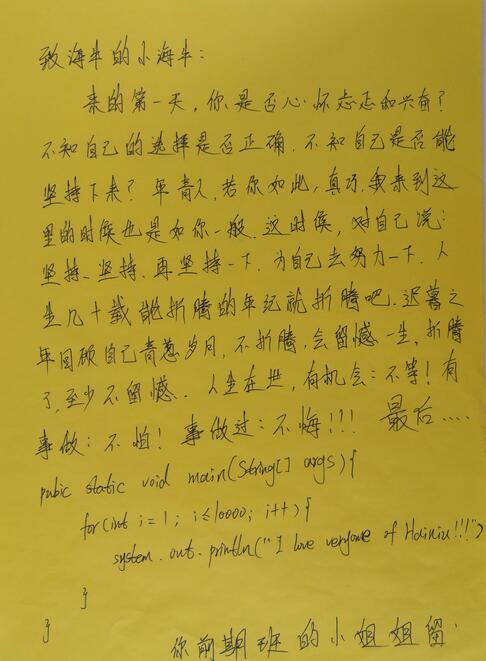 致海牛的小海牛：
来的第一天，你是否心怀忐忑和兴奋？
不知自己的选择是否正确．不知自己是否能
坚持下来？年青人，若你如此，真巧，我来到这
里的时候也是如你一般．这时候，对自己说：
坚持、坚持、再坚持一下．为自己去努力一下．人
生几十载能折腾的年纪就折腾吧．迟暮之
年回顾自己青葱岁月，不折腾，会留憾一生，折腾
了，至少不留憾．人生在世，有机会：不等！有
事做：不怕！事做过：不悔！！！最后....
pubic static void main(String[] args){
for(int i=1; i≤10000; i++){
system.out.println("I love veryone of Hainiu!!!")
}
}
你前期班的小姐姐留．